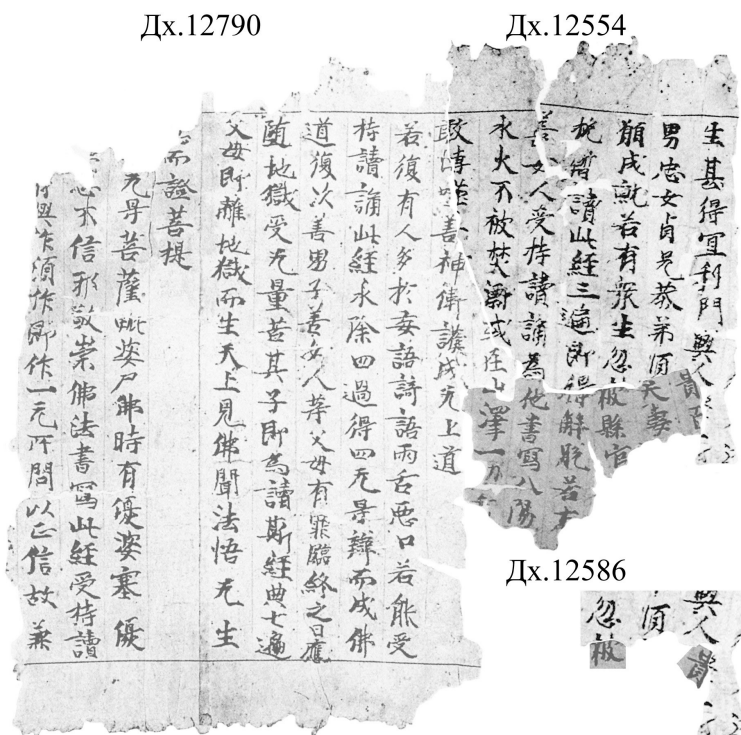 Дх.12790
Дх.12554
生甚得宜利門興人貴
男忠女貞兄恭弟順夫妻
願成就若有衆生忽被縣官
枙暫讀此經三遍即得解脫若有
善女人受持讀誦為他書寫八陽
水火不被焚漂或在山澤一切
敢博噬善神衛護成无上道
若復有人多於妄語綺語兩舌惡口若能受
持讀誦此經永除四過得四无㝵辯而成佛
道復次善男子善女人等父母有罪臨終之日應
墮地獄受无量苦其子即為讀斯經典七遍
父母即離地獄而生天上見佛聞法悟无生
而證菩提
无㝵菩薩毗婆尸佛時有優婆塞優
心不信邪敬崇佛法書寫此經受持讀
所興作須作即作一无所問以正信故兼
Дх.12586
興人貴
順
忽被